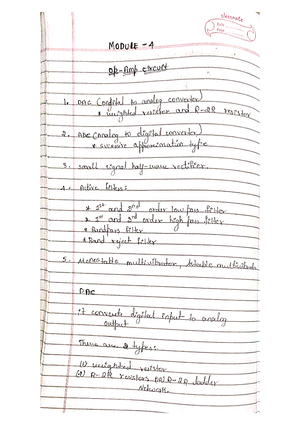 classmate
Date
Page
MODULE - 4
Op-Amp circuit
1. DAC (Digital to analog converter)
* weighted resistor and R-2R resistor
2. ADC (Analog to digital converter)
* successive approximation type
3. small signal half-wave rectifier.
4. Active filters:
* 1st and 2nd order low pass filter
* 1st and 2nd order high pass filter
* Bandpass filter
* Band reject filter
5. Monostable multivibrator, Astable multivibrator
DAC
It converts digital input to analog
output
There are 2 types:
(1) weighted resistor
(2) R-2R resistors (or) R-2R ladder
Network.